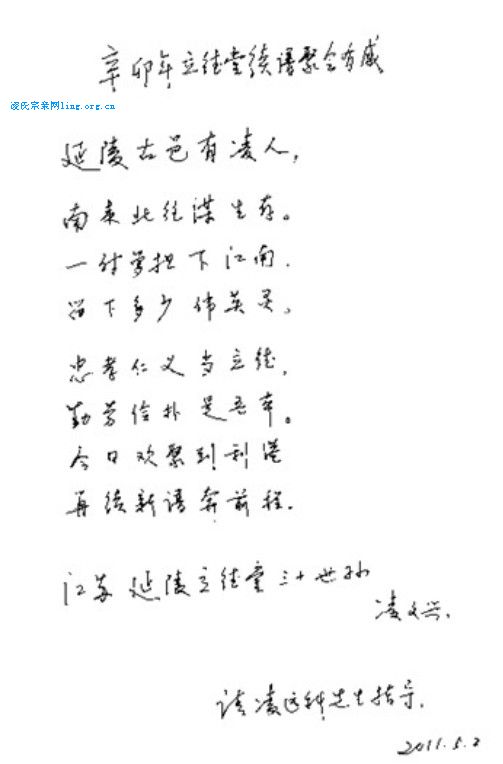 辛卯年立德堂续谱聚会有感
凌氏宗亲网ling.org.cn
延陵古邑有凌人,
南来北往谋生存。
一付箩担下江南.
留下多少伟英灵。
忠孝仁义当立德,
勤劳俭扑是吾本。
今日欢聚到利港
再续新谱奔前程.
江苏延陵立德堂三十世孙
凌文兴.
请凌先生指导.
2011.5.2